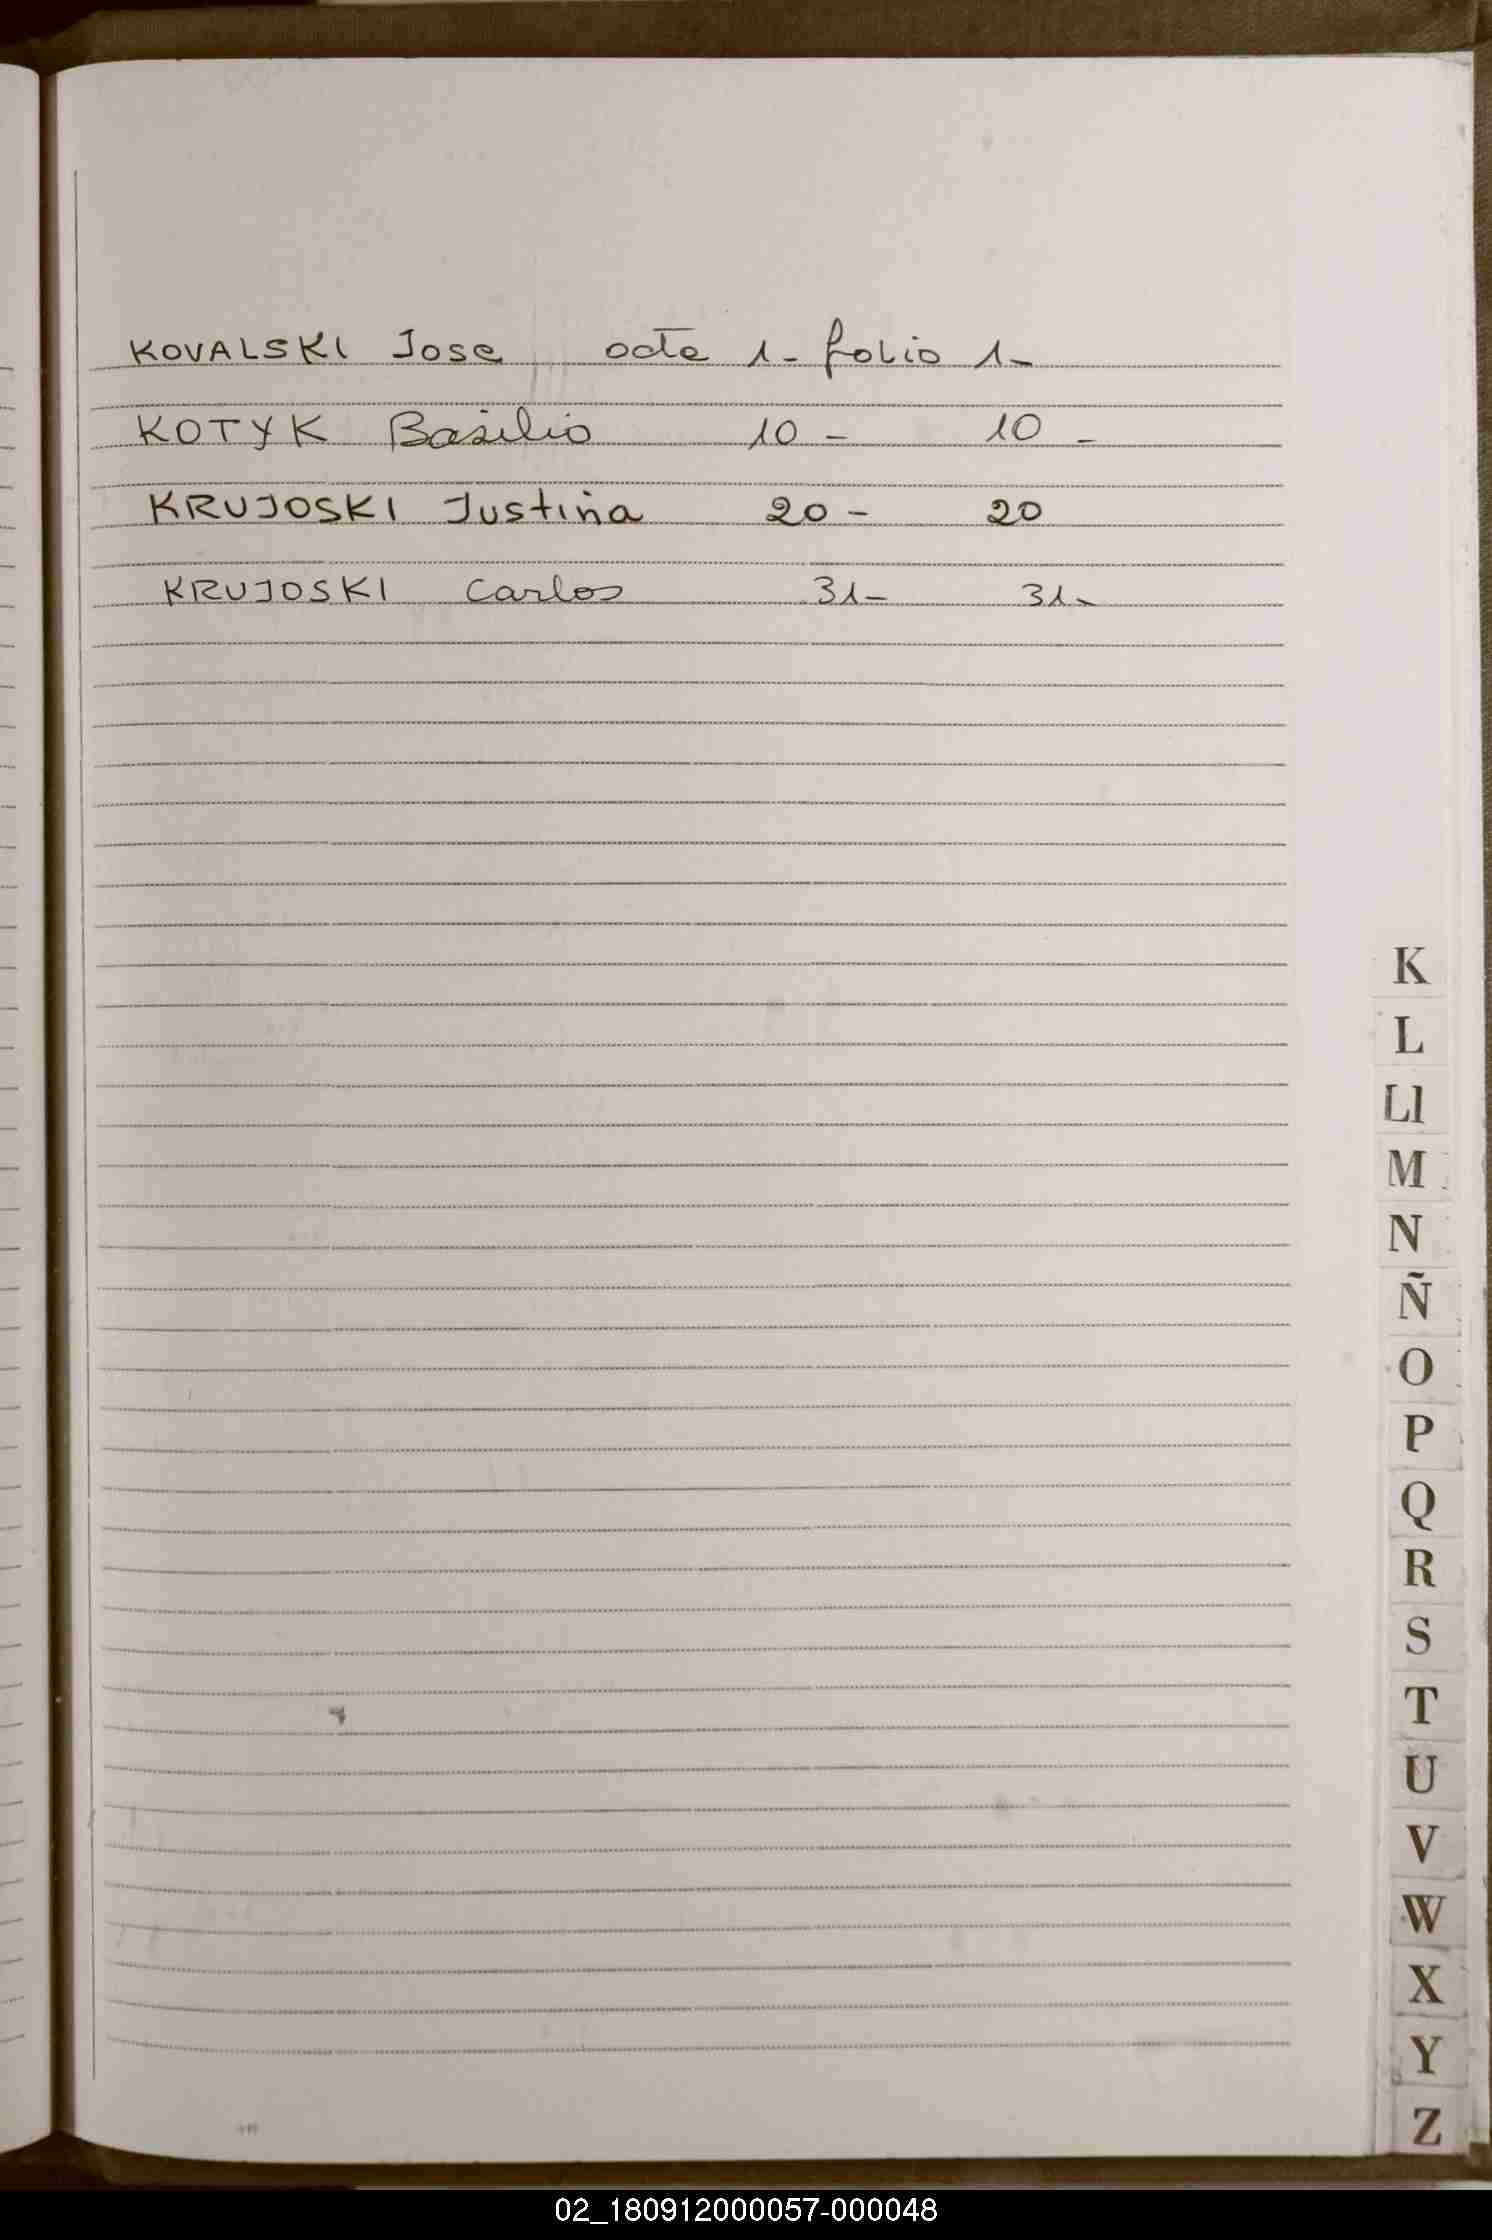 KOVALSKI Jose acta 1- folio 1-
KOTYK Basilio 10- 10-
KRUJOSKI Justina 20- 20
KRUJOSKI Carlos 31- 31-
K
L
Ll
M
N
Ñ
O
P
Q
R
S
T
U
V
W
X
Y
Z
02_180912000057-000048